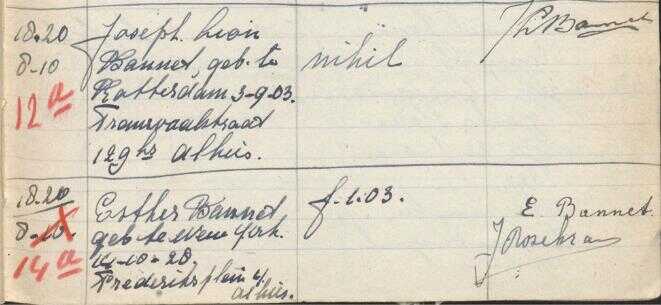 18.20 Joseph Lion
8-10 Bannet, geb. te nihil
Rotterdam 3-9-03.
12a Transvaalstraat
129hs alhier.
18.20 Esther Bannet f. 1.03. E. Bannet.
8-10. geb. te New York.
14a 14-10-20.
Frederiksplein 4
alhier.